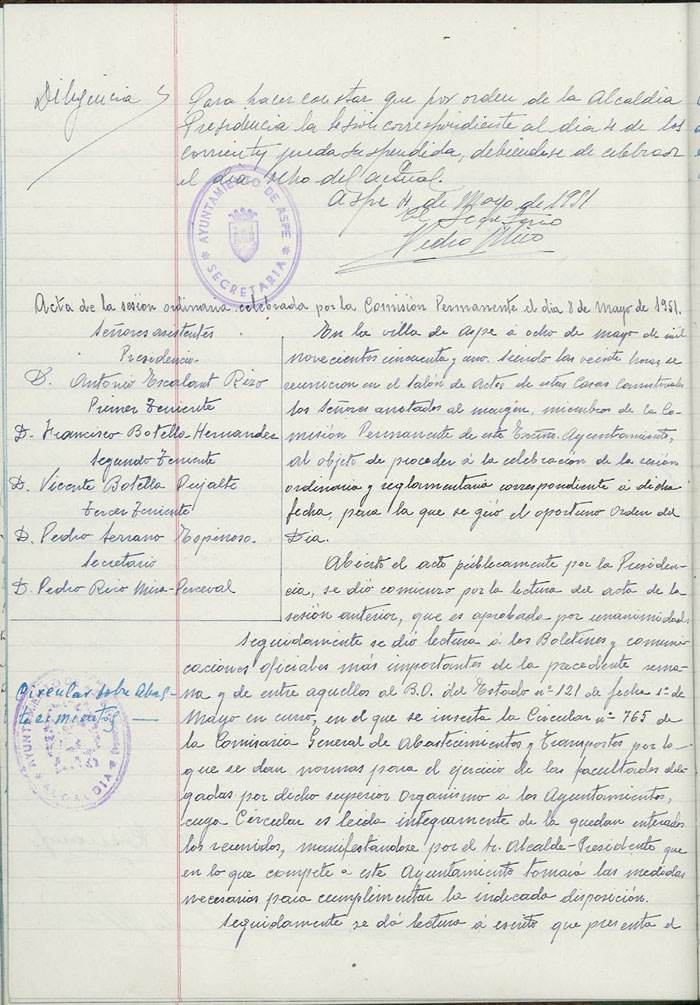 Diligencia
Para hacer constar que por orden de la Alcaldia
Presidencia la sesión correspondiente al dia 4 de los
corrientes queda suspendida, debiendose de celebrar
el dia ocho del actual.
Aspe 4 de Mayo de 1951
El Secretario
Pedro Rico
AYUNTAMIENTO DE ASPE
SECRETARIA
Acta de la sesion ordinaria celebrada por la Comisión Permanente el dia 8 de Mayo de 1951.
Señores asistentes
Presidencia
D. Antonio Escalant Rizo
Primer Teniente
D. Francisco Botella Hernandez
Segundo Teniente
D. Vicente Botella Pujalte
Tercer Teniente
D. Pedro Serrano Espinosa
Secretario
D. Pedro Rico Mira-Perceval
En la villa de Aspe á ocho de mayo de mil
novecientos cincuenta y uno. Siendo las veinte horas se
reunieron en el Salón de Actos de estas Casas Consistoriales
los Señores anotados al margen, miembros de la Co-
misión Permanente de este Excmo. Ayuntamiento,
al objeto de proceder á la celebración de la sesión
ordinaria y reglamentaria correspondiente á dicha
fecha, para la que se giró el oportuno Orden del
Dia.
Abierto el acto públicamente por la Presiden-
cia, se dió comienzo por la lectura del acta de la
sesión anterior, que es aprobada por unanimidad.
Seguidamente se dió lectura á los Boletines y comuni-
caciones oficiales más importantes de la precedente sema-
na y de entre aquellos al B.O. del Estado nº 121 de fecha 1º de
Mayo en curso, en el que se inserta la Circular nº 765 de
la Comisaria General de Abastecimientos y Transportes por lo
que se dan normas para el ejercicio de las facultades dele-
gadas por dicho superior Organismo á los Ayuntamientos,
cuya Circular es leida integramente de la quedan enterados
los reunidos, manifestandose por el Sr. Alcalde-Presidente que
en lo que compete a este Ayuntamiento tomará las medidas
necesarias para cumplimentar la indicada disposición.
Seguidamente se dá lectura á escrito que presenta el
Circular sobre Abas-
tecimientos
AYUNTAMIENTO
ALCALDIA